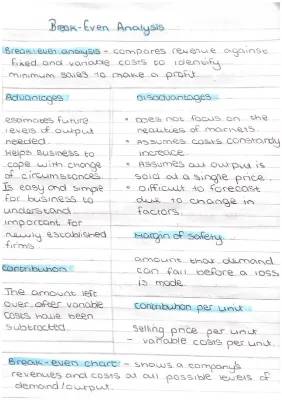 Break-Even Analysis
Break-even analysis - compares revenue against
fixed and variable costs to identify
minimum sales to make a profit.
Advantages
estimates future
levels of output
needed.
Helps business to
cope with change
of circumstances.
Is easy and simple
for business to
understand
important for
newly established
firms.
Contribution
The amount left
over after variable
costs have been
subtracted.
Disadvantages
• Does not focus on the
realities of markets.
• Assumes costs constantly
increase.
• Assumes all output is
sold at a single price.
• Difficult to forecast
due to change in
factors.
Margin of safety
amount that demand
can fall before a loss
is made.
Contribution per unit
Selling price per unit
- variable costs per unit.
Break-even chart - shows a company's
revenues and costs at all possible levels of
demand/output.